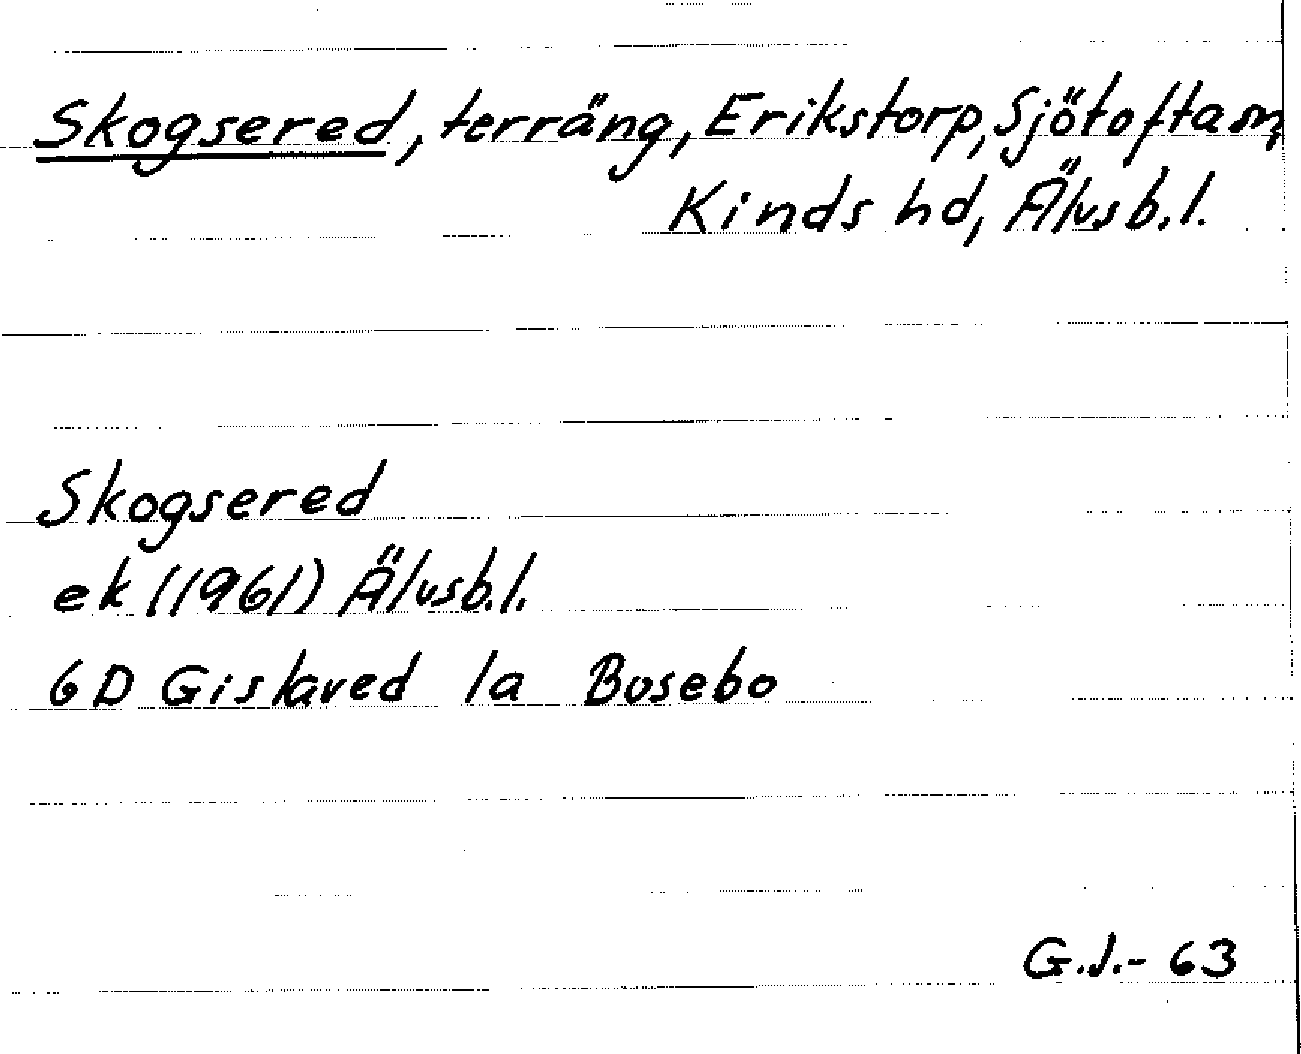 Skogsered, terräng, Erikstorp, Sjötofta sn,
Kinds hd, Älvsb.l.
Skogsered
ek (1961) Älvsb.l.
6D Gislaved 1a Bosebo
G.J.-63